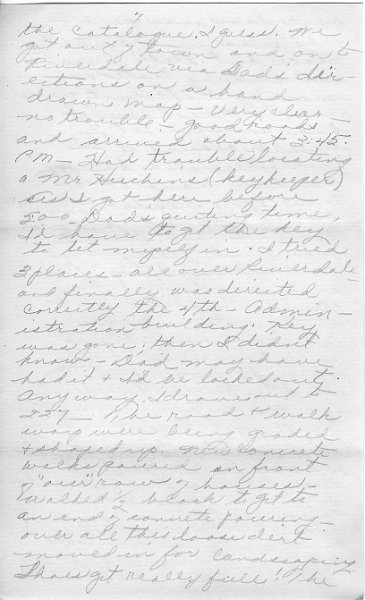 the catalogue, I guess. We
got out of town and on to
Riverdale via Dad's dir-
ections on a hand
drawn map - Very clear -
no trouble. Good roads
and arrived about 3:45
PM - Had trouble locating
a Mr Huchins (keykeeper)
as I got here before
5:00 - Dad's quiting time,
I'd have to get the key
to let myself in. I tried
3 places - all over Riverdale
and finally was directed
correctly the 4th - Admin-
istration building. Key
was gone; then I didn't
know - Dad may have
had it & I'd be locked out
Anyway, I drove out to
227 - The road & walk
way were being graded
& shaped up. New concrete
walks poured in front
of "our" row of houses -
Walked ½ block to get to
an end of concrete pouring -
over all this loose dirt
moved in for landscaping.
Shoes get really full! The